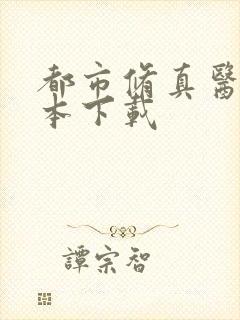 都市脩真醫
本下載
譚宗智